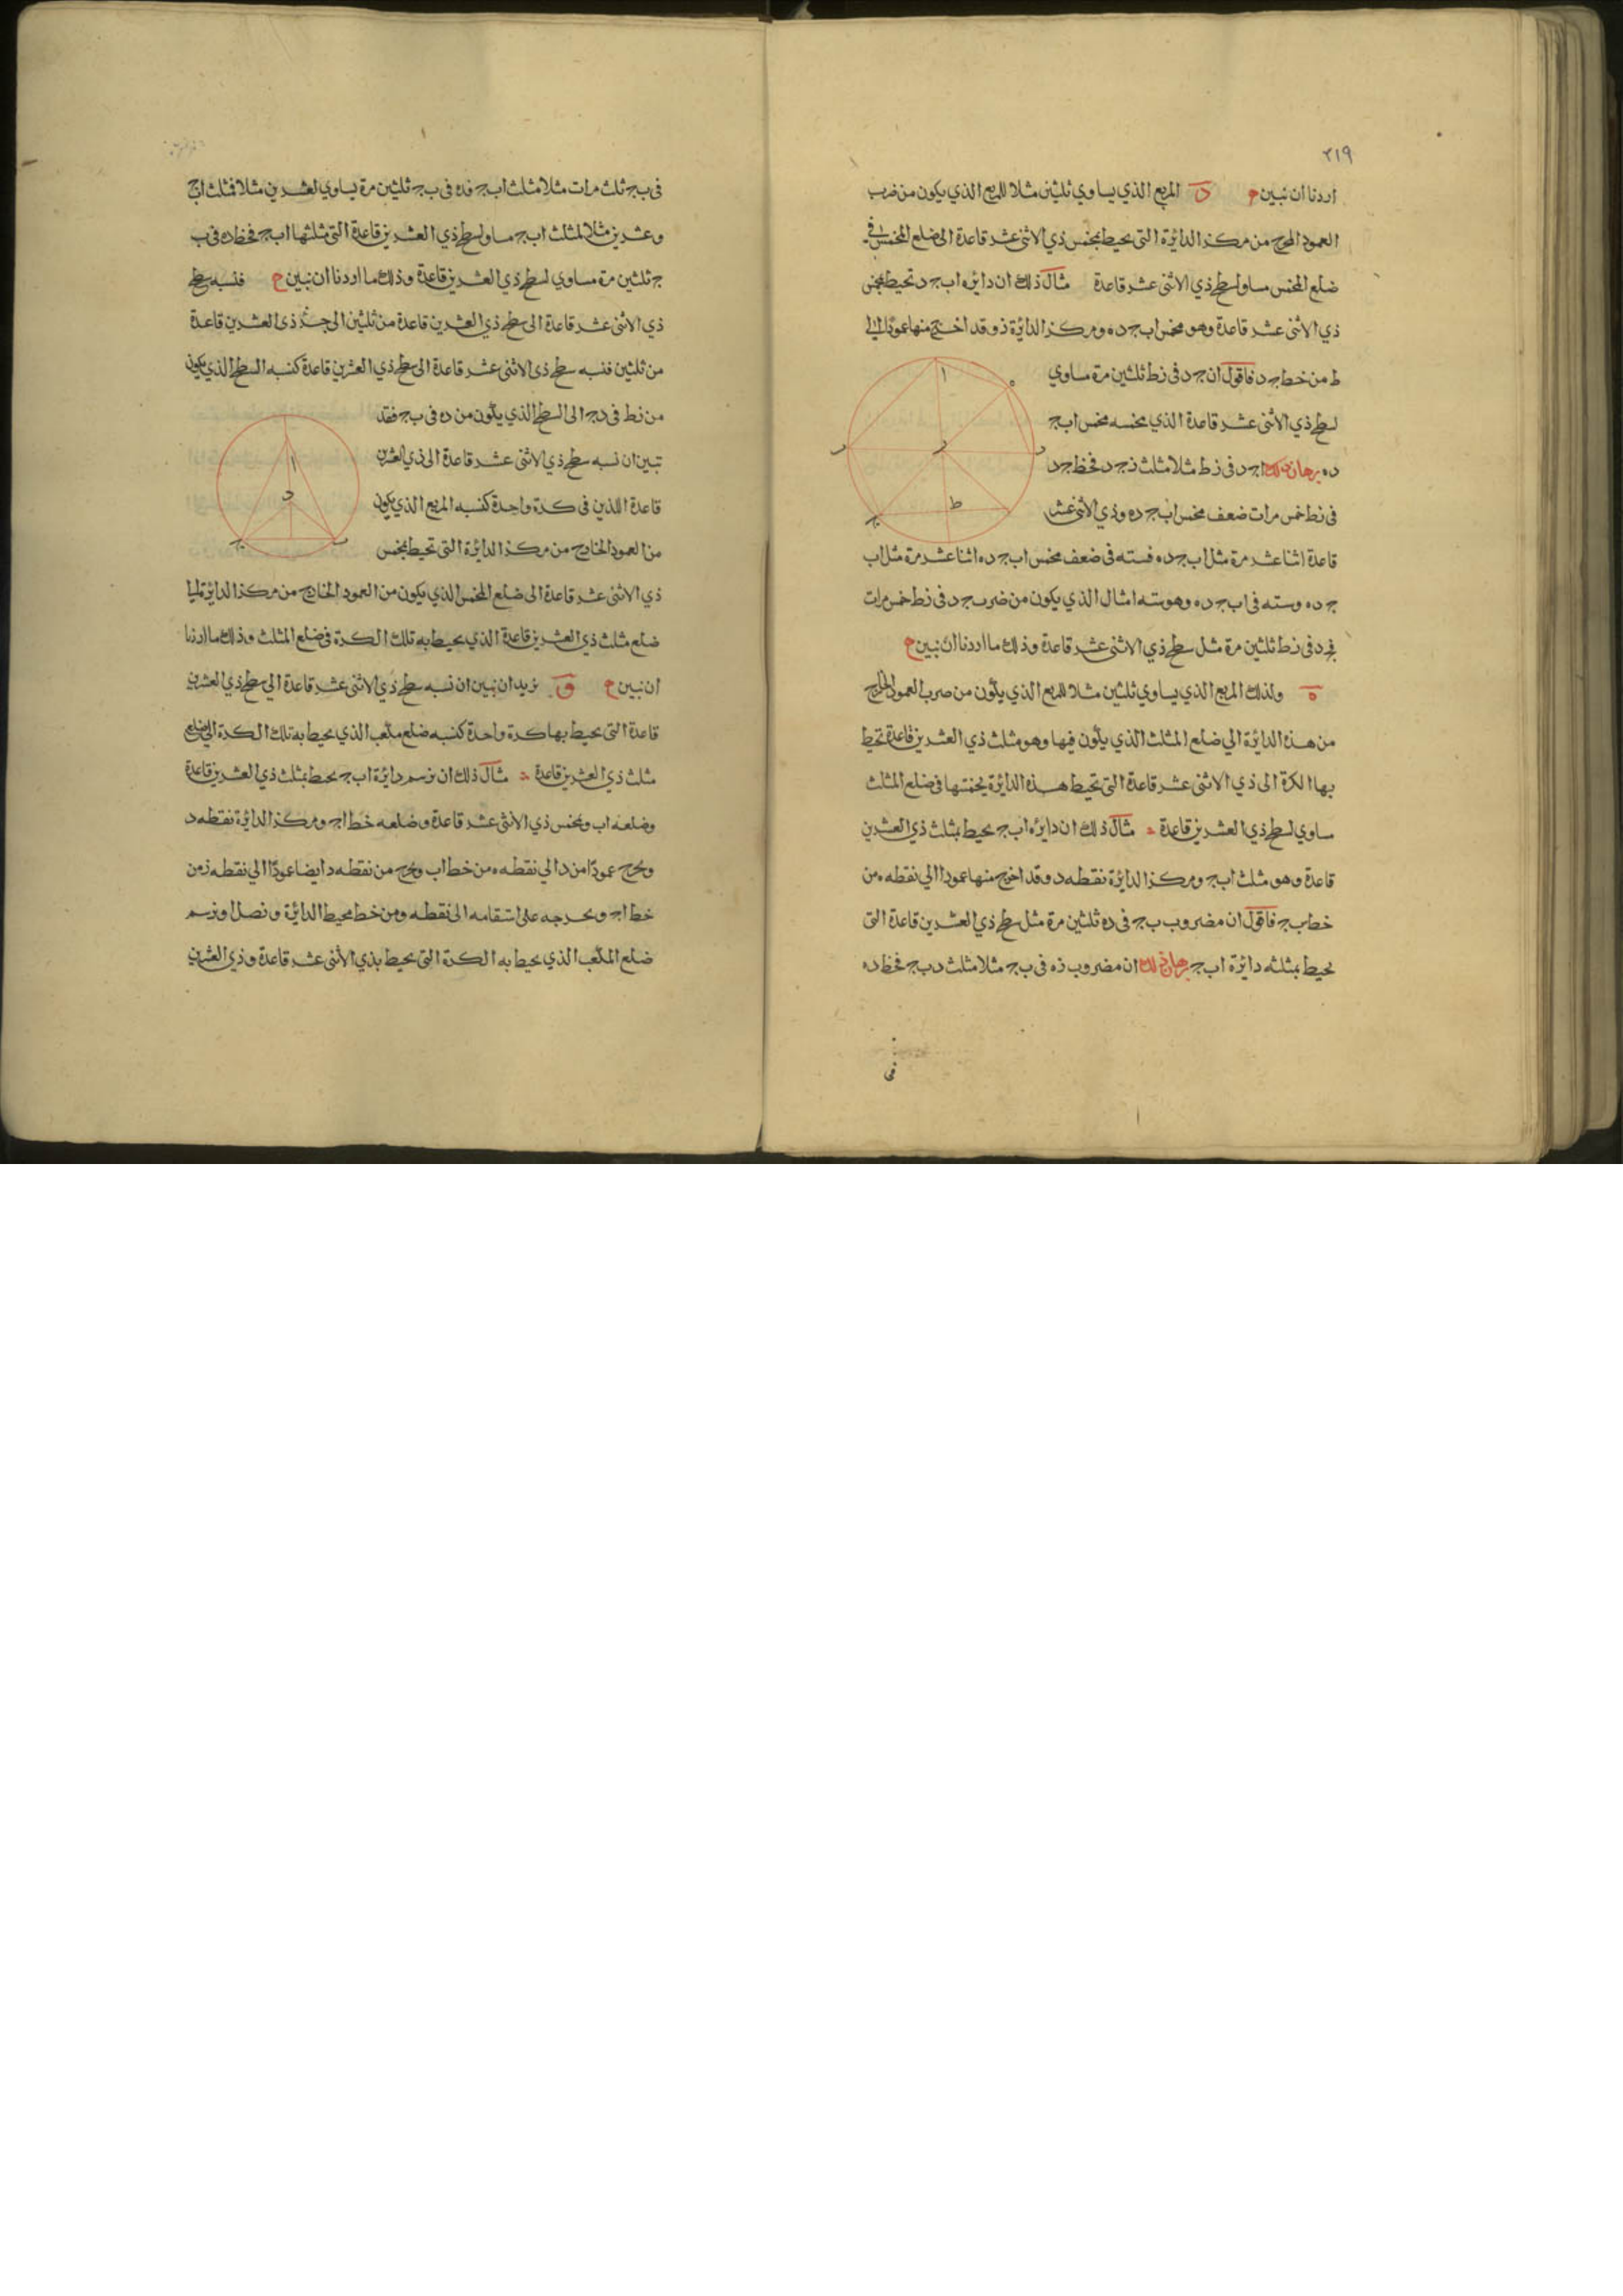 ٢١٩
اردنا ان نبين ح د المربع الذي يساوي ثلثين مثلا للمربع الذي يكون من ضرب
العمود المخرج من مركز الدائرة التى تحيط بمخمس ذي الاثنى عشر قاعدة الى ضلع المخمس في
ضلع المخمس مساو لسطح ذي الاثنى عشر قاعدة مثال ذلك ان دايره اب ج د تحيط بمخمس
ذي الاثنى عشر قاعدة وهو مخمس اب ج ده ومركز الدائرة ز وقد اخرج منها عمودا الى
ط من خط ج د فاقول ان ج د فى زط ثلثين مرة مساوي
لسطح ذي الاثنى عشر قاعدة الذي مخمسه مخمس اب ج
ده برهان ذلك ان ج د فى زط مثلا مثلث زج د فخط ج د
فى زط خمس مرات ضعف مخمس اب ج ده وذي الاثنى عشر
قاعدة اثنا عشر مرة مثل اب ج ده فسته فى ضعف مخمس اب ج ده اثنا عشر مرة مثل اب
ج ده وسته فى اب ج ده وهو سته امثال الذي يكون من ضرب ج د فى زط خمس مرات
فج د فى زط ثلثين مرة مثل سطح ذي الاثنى عشر قاعدة وذلك ما اردنا ان نبين ح
ه ولذلك المربع الذي يساوي ثلثين مثلا للمربع الذي يكون من ضرب العمود الخارج
من هذه الدائرة الي ضلع المثلث الذي يكون فيها وهو مثلث ذي العشرين قاعدة تحيط
بها الكرة الى ذي الاثنى عشر قاعدة التى تحيط هذه الدائرة بمخمسها فى ضلع المثلث
مساوي لسطح ذي العشرين قاعدة مثال ذلك ان دايره اب ج يحيط بمثلث ذي العشرين
قاعدة وهو مثلث اب ج ومركز الدائرة نقطه د وقد اخرج منها عمودا الي نقطه ه من
خط ب ج فاقول ان مضروب ب ج فى ده ثلثين مرة مثل سطح ذي العشرين قاعدة التى
يحيط بمثلثه دائرة اب ج برهان ذلك ان مضروب ده فى ب ج مثلا مثلث دب ج فخط ده
فى
ا
ه
د
ب
ز
ط
ج
فى ب ج ثلث مرات مثلا مثلث اب ج فده فى ب ج ثلثين مرة يساوي لعشرين مثلا لمثلث اب ج
وعشرين مثلا لمثلث اب ج مساو لسطح ذي العشرين قاعدة التى مثلثها اب ج فخط ده فى ب
ج ثلثين مرة مساوي لسطح ذي العشرين قاعدة وذلك ما اردنا ان نبين ح فنسبه سطح
ذي الاثنى عشر قاعدة الى سطح ذي العشرين قاعدة من ثلثين الى جزء ذى العشرين قاعدة
من ثلثين فنسبه سطح ذى الاثنى عشر قاعدة الى سطح ذي العشرين قاعدة كنسبه السطح الذي يكون
من زط فى دج الى السطح الذي يكون من ده فى ب ج فقد
تبين ان نسبه سطح ذي الاثنى عشر قاعدة الى ذي العشرين
قاعدة اللذين فى كرة واحدة كنسبه المربع الذي يكون
من العمود الخارج من مركز الدائرة التى تحيط بمخمس
ذي الاثنى عشر قاعدة الى ضلع المخمس الذي يكون من العمود الخارج من مركز الدائرة الي
ضلع مثلث ذي العشرين قاعدة الذي يحيط به تلك الكرة فى ضلع المثلث وذلك ما اردنا
ان نبين ح و نريد ان نبين ان نسبه سطح ذي الاثنى عشر قاعدة الي سطح ذي العشرين
قاعدة التى يحيط بها كرة واحدة كنسبه ضلع مكعب الذي يحيط به تلك الكرة الى ضلع
مثلث ذي العشرين قاعدة مثال ذلك ان نرسم دائرة اب ج يحيط بمثلث ذي العشرين قاعدة
وضلعه اب ومخمس ذي الاثنى عشر قاعدة وضلعه خط اج ومركز الدائرة نقطه د
ونخرج عمودًا من د الي نقطه ه من خط اب ونخرج من نقطه د ايضا عمودًا الي نقطه ز من
خط اج ونخرجه على استقامه الى نقطه ومن خط محيط الدائرة ونصل ا ونرسم
ضلع المكعب الذي يحيط به الكرة التى يحيط بذي الاثنى عشر قاعدة وذي العشرين
ا
د
ج
ب